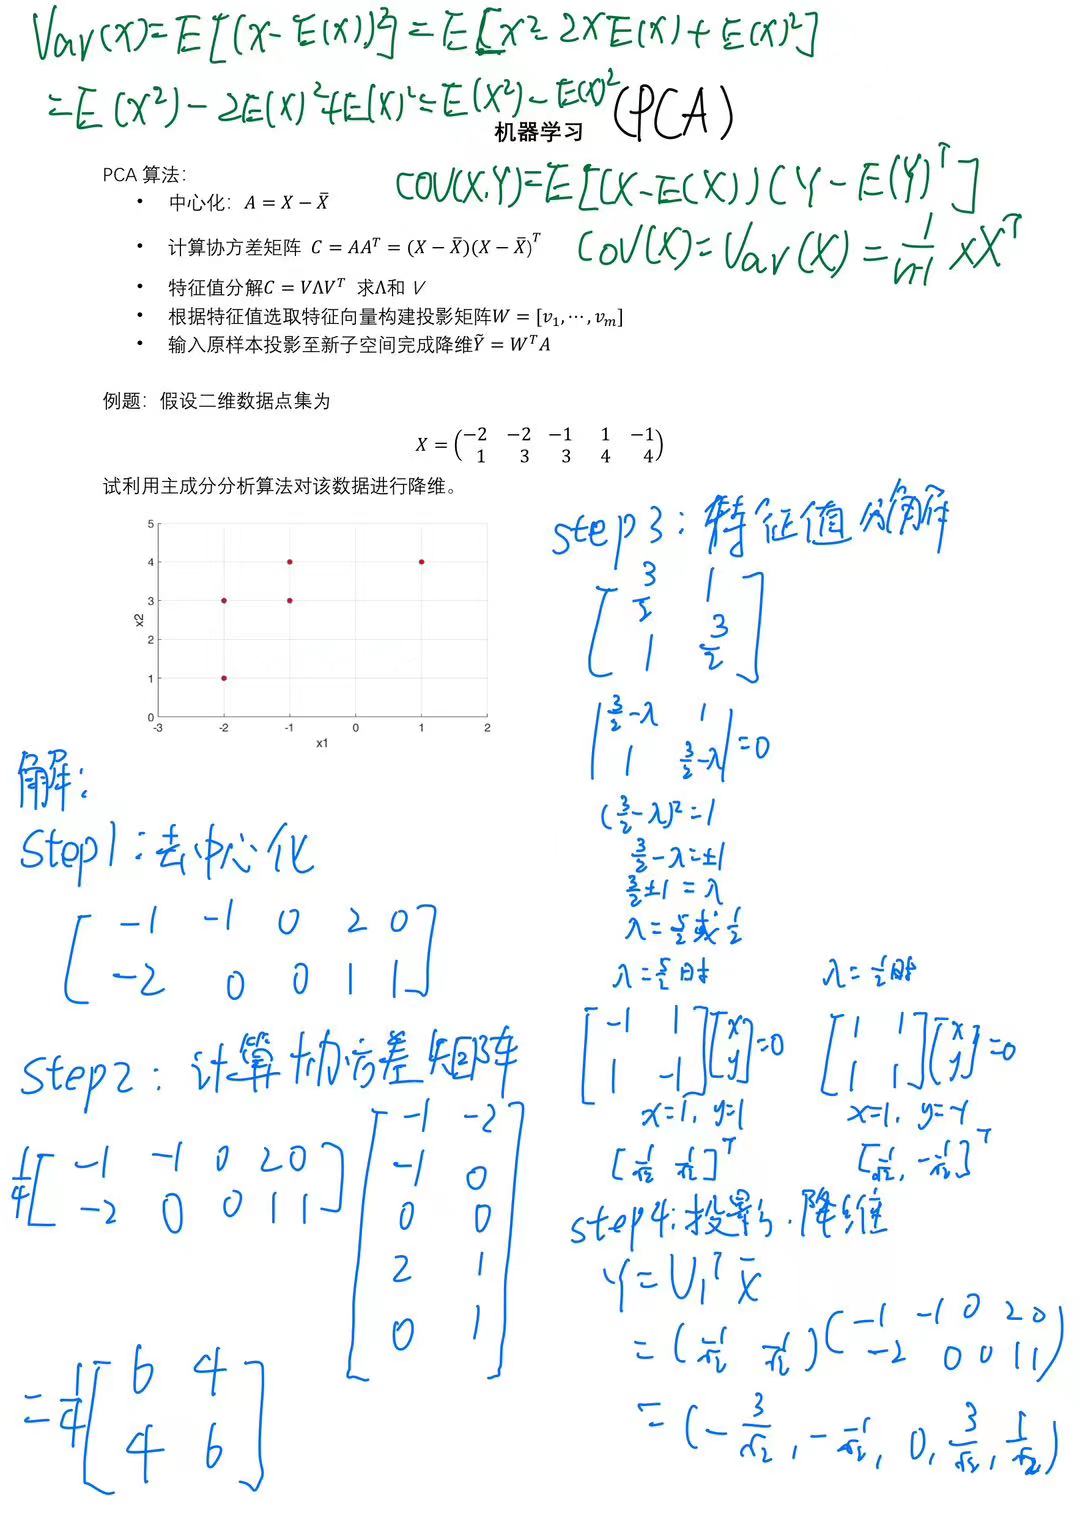 Var(X)=E[(X-E(X))²]=E[X²-2XE(X)+E(X)²]
=E(X²)-2E(X)²+E(X)²=E(X²)-E(X)²
机器学习 (PCA)
COV(X,Y)=E[(X-E(X))(Y-E(Y)ᵀ]
COV(X)=Var(X)=1/(n-1) XXᵀ
PCA 算法：
• 中心化：A = X − X̄
• 计算协方差矩阵 C = AAᵀ = (X − X̄)(X − X̄)ᵀ
• 特征值分解C = VΛVᵀ 求Λ和 V
• 根据特征值选取特征向量构建投影矩阵W = [v₁,⋯,vₘ]
• 输入原样本投影至新子空间完成降维Ỹ = WᵀA
例题：假设二维数据点集为
X = (−2 −2 −1 1 −1
1 3 3 4 4)
试利用主成分分析算法对该数据进行降维。
5
4
3
2
1
0
x2
-3 -2 -1 0 1 2
x1
解：
Step1：去中心化
[-1 -1 0 2 0
-2 0 0 1 1]
Step2：计算协方差矩阵
1/4 [-1 -1 0 2 0
-2 0 0 1 1]
[-1 -2
-1 0
0 0
2 1
0 1]
= 1/4 [6 4
4 6]
step3：特征值分解
[3/2 1
1 3/2]
|3/2-λ 1
1 3/2-λ| =0
(3/2-λ)²=1
3/2-λ=±1
3/2±1=λ
λ=5/2或1/2
λ=5/2时
[-1 1
1 -1][x
y]=0
x=1, y=1
[1/√2 1/√2]ᵀ
λ=1/2时
[1 1
1 1][x
y]=0
x=1, y=-1
[1/√2, -1/√2]ᵀ
step4:投影.降维
Y=U₁ᵀX̄
=(1/√2 1/√2)(-1 -1 0 2 0
-2 0 0 1 1)
=(-3/√2, -1/√2, 0, 3/√2, 1/√2)